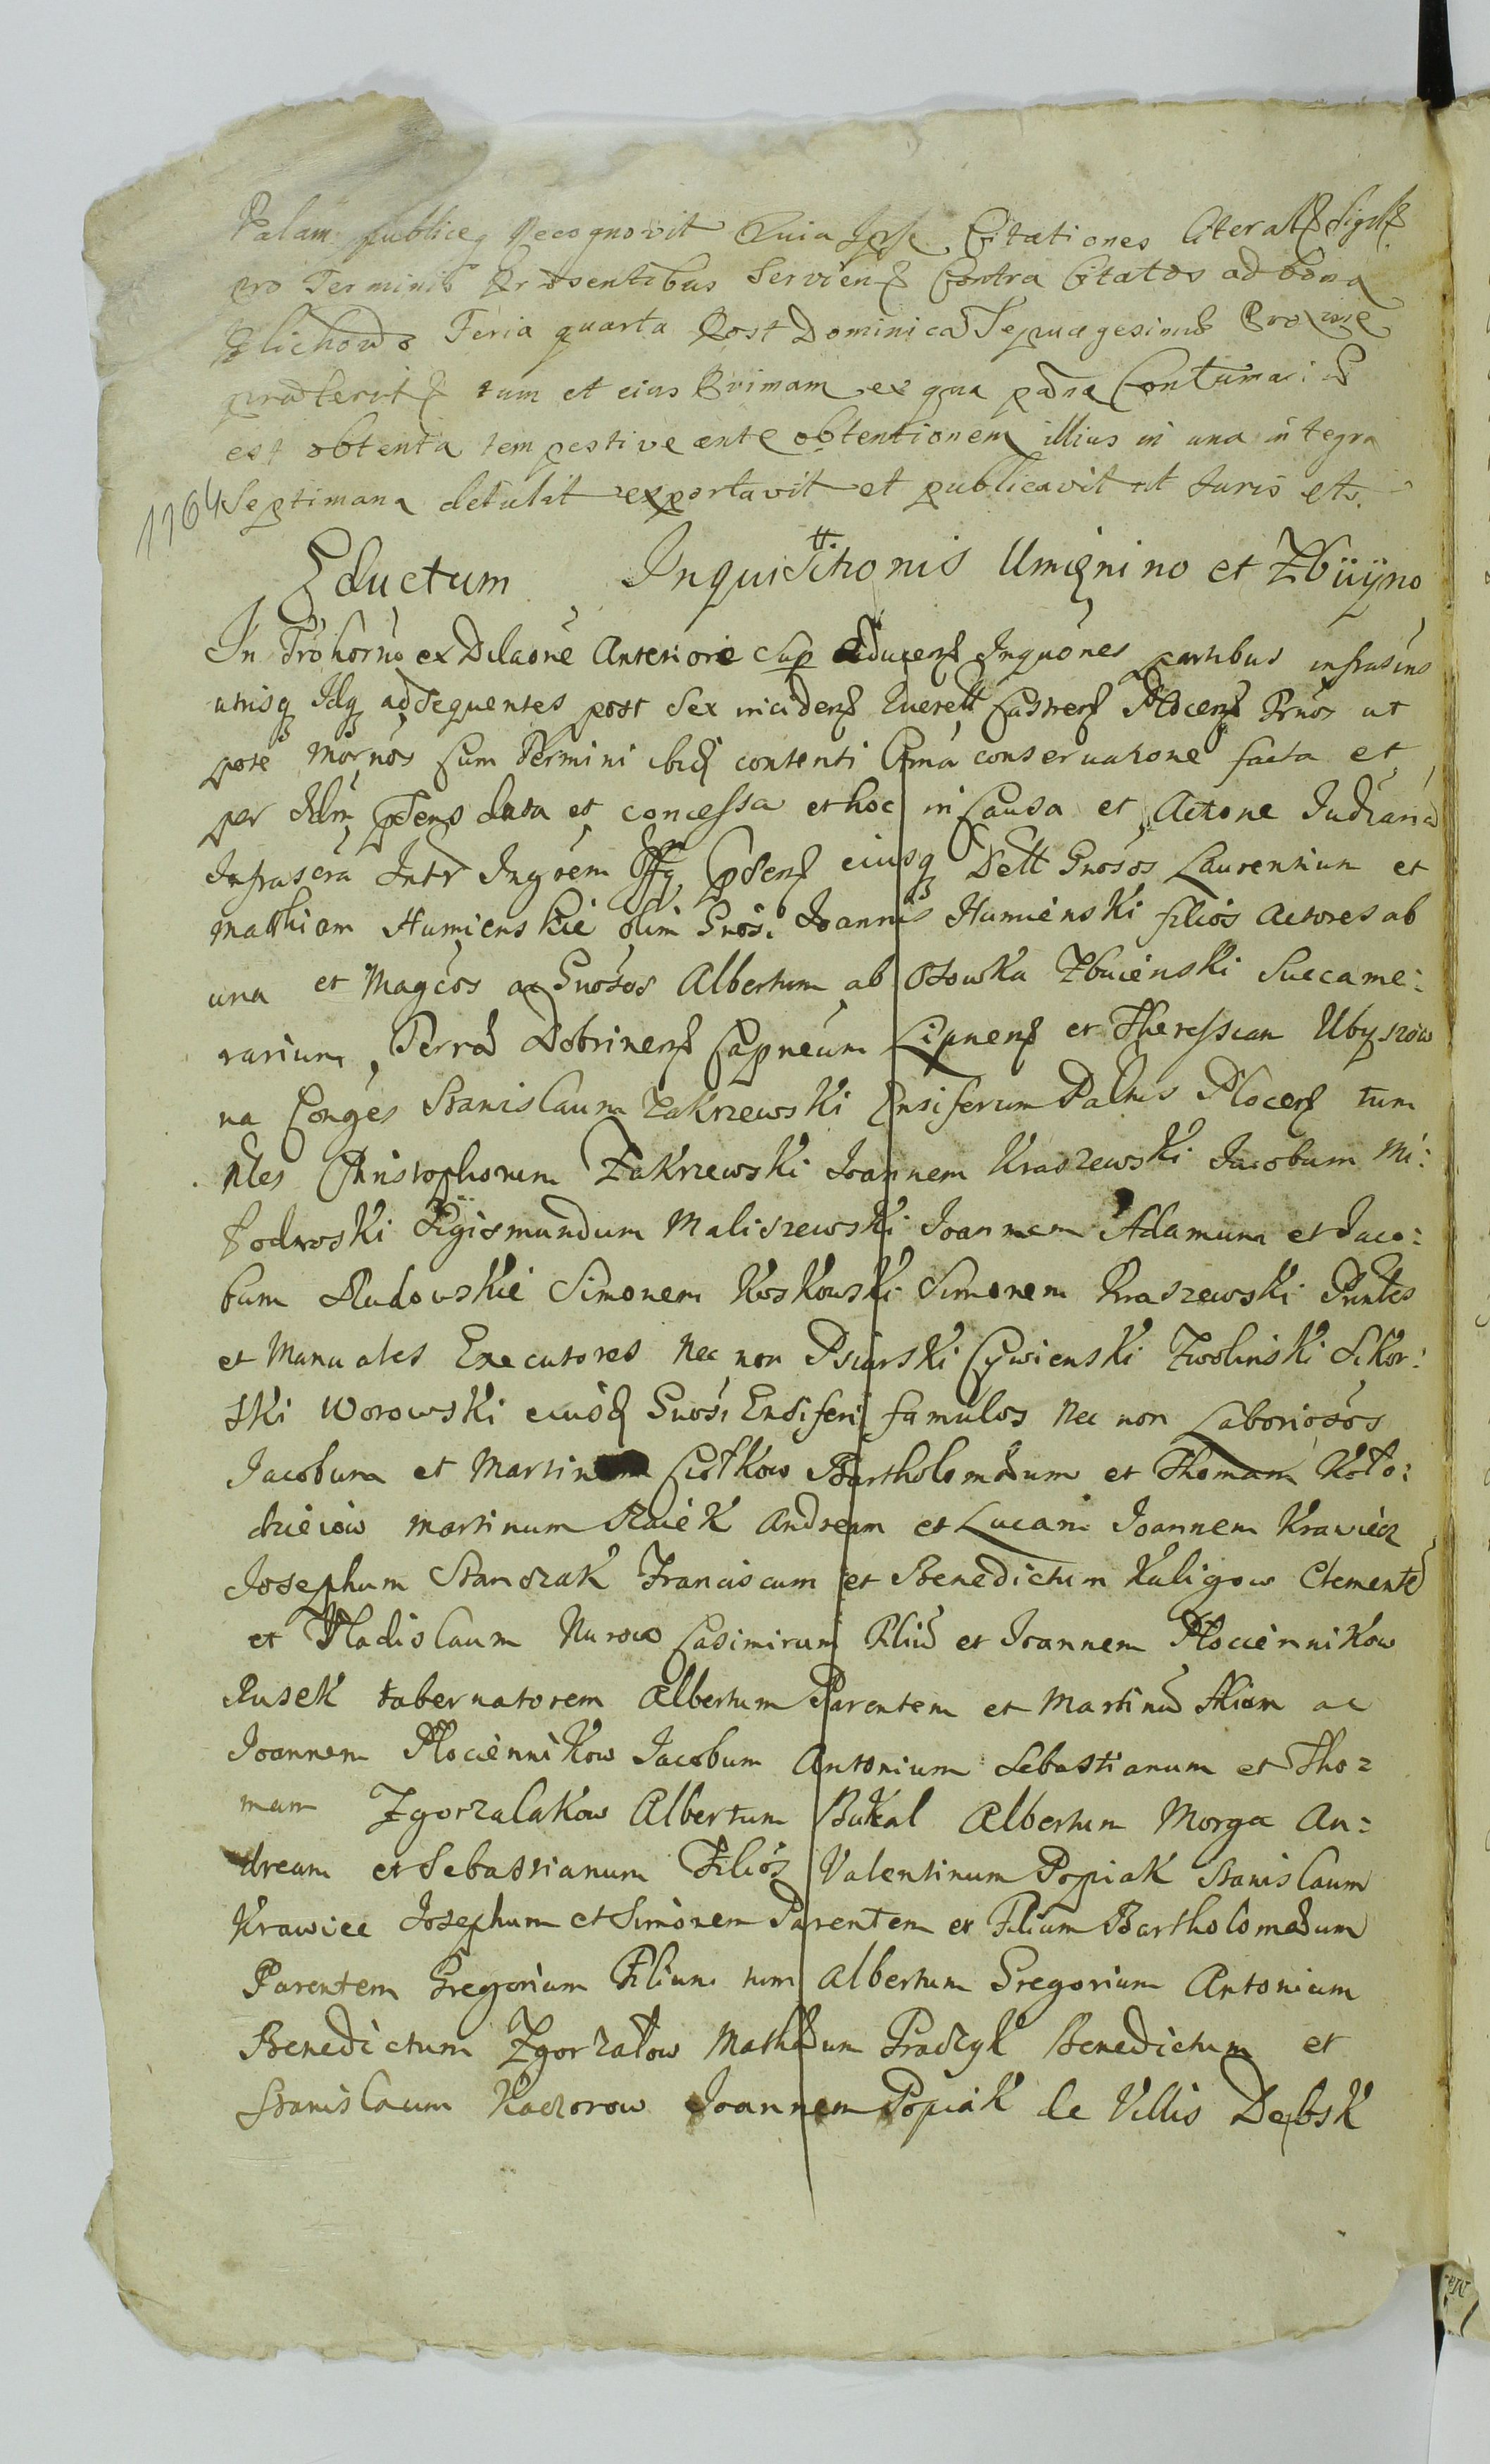 Palam publiceq Recognovit Quia Ipse Citationes literall sigill
pro Terminis Præsentibus Serviens Contra Citatos ad bona
Feria quarta Post Dominicā Septuagesimæ Proxime
præterit tum et eius Primam ex qua pœna Contumaci
est obtenta tempestive ante obtentionem illius in una integra
1764
Septimana detulit exportavit et publicavit ut Iuris etc.
Eductum Inquisitionis Umięnino et Zbuyno
In ex Dilaōne Anteriori educens Inquōnes partibus infrascris
utrisq Idq ad sequentes post sex inciden Querell Castren Plocen ut
contenti conservatione facta et
per data et concessa et hoc in Causa et Actione Iudiaria
Infrascra Intr Ingrem Offy eiusq Dett Gnosos Laurentium et
Mathiam Humienskie olim Gnosi Ioannis Humienski filios Actores ab
una et Magcos ac Gnosos Albertum ab Osowka Zbuienski Succame:
rarium Terræ Dobrinens Capneum Lipnens et Theressiam Ubyszow
na Conges Stanislaum Zakrzewski Ensiferum Palnts Plocens tum
Nles Christophorum Zakrzewski Ioannem Kraszewski Iacobum Mi:
Podwoski Sigismundum Maliszewski Ioannem Adamum et Iaco:
bum Rudowskie Simonem Koskowski Simonem Kraszewski
et Manuales Executores Nec non Psiarski Cywienski Zwolinski Sikor:
ski Worowski eiusd Gnosi Ensiferi famulos Nec non Laboriosos
Iacobum et Martinum Ciołkow Bartholomæum et Thomam Koło:
dzieiow Martinum Raiek Andream et Lucam Ioannem Krawiec
Iosephum Stanszak Franciscum et Benedictum Kuligow Clementē
et Vladislaum Nurow Casimirum Filiū et Ioannem Płociennikow
Rusek tabernatorem Albertum Parentem et Martinū Filium ac
Ioannem Płociennikow Iacobum Antonium Sebastianum et Tho:
mam Zgorzalakow Albertum Bukal Albertum Morga An:
dream et Sebastianum Filios Valentinum Popiak Stanislaum
Krawiec Iosephum et Simonem Parentem et Filium Bartholomæum
Parentem Gregorium Filium tum Albertum Gregorium Antonium
Benedictum Zgorzałow Mathæum Praczyk Benedictum et
Stanislaum Kaczorow Ioannem Popiak de Villis Dębsk